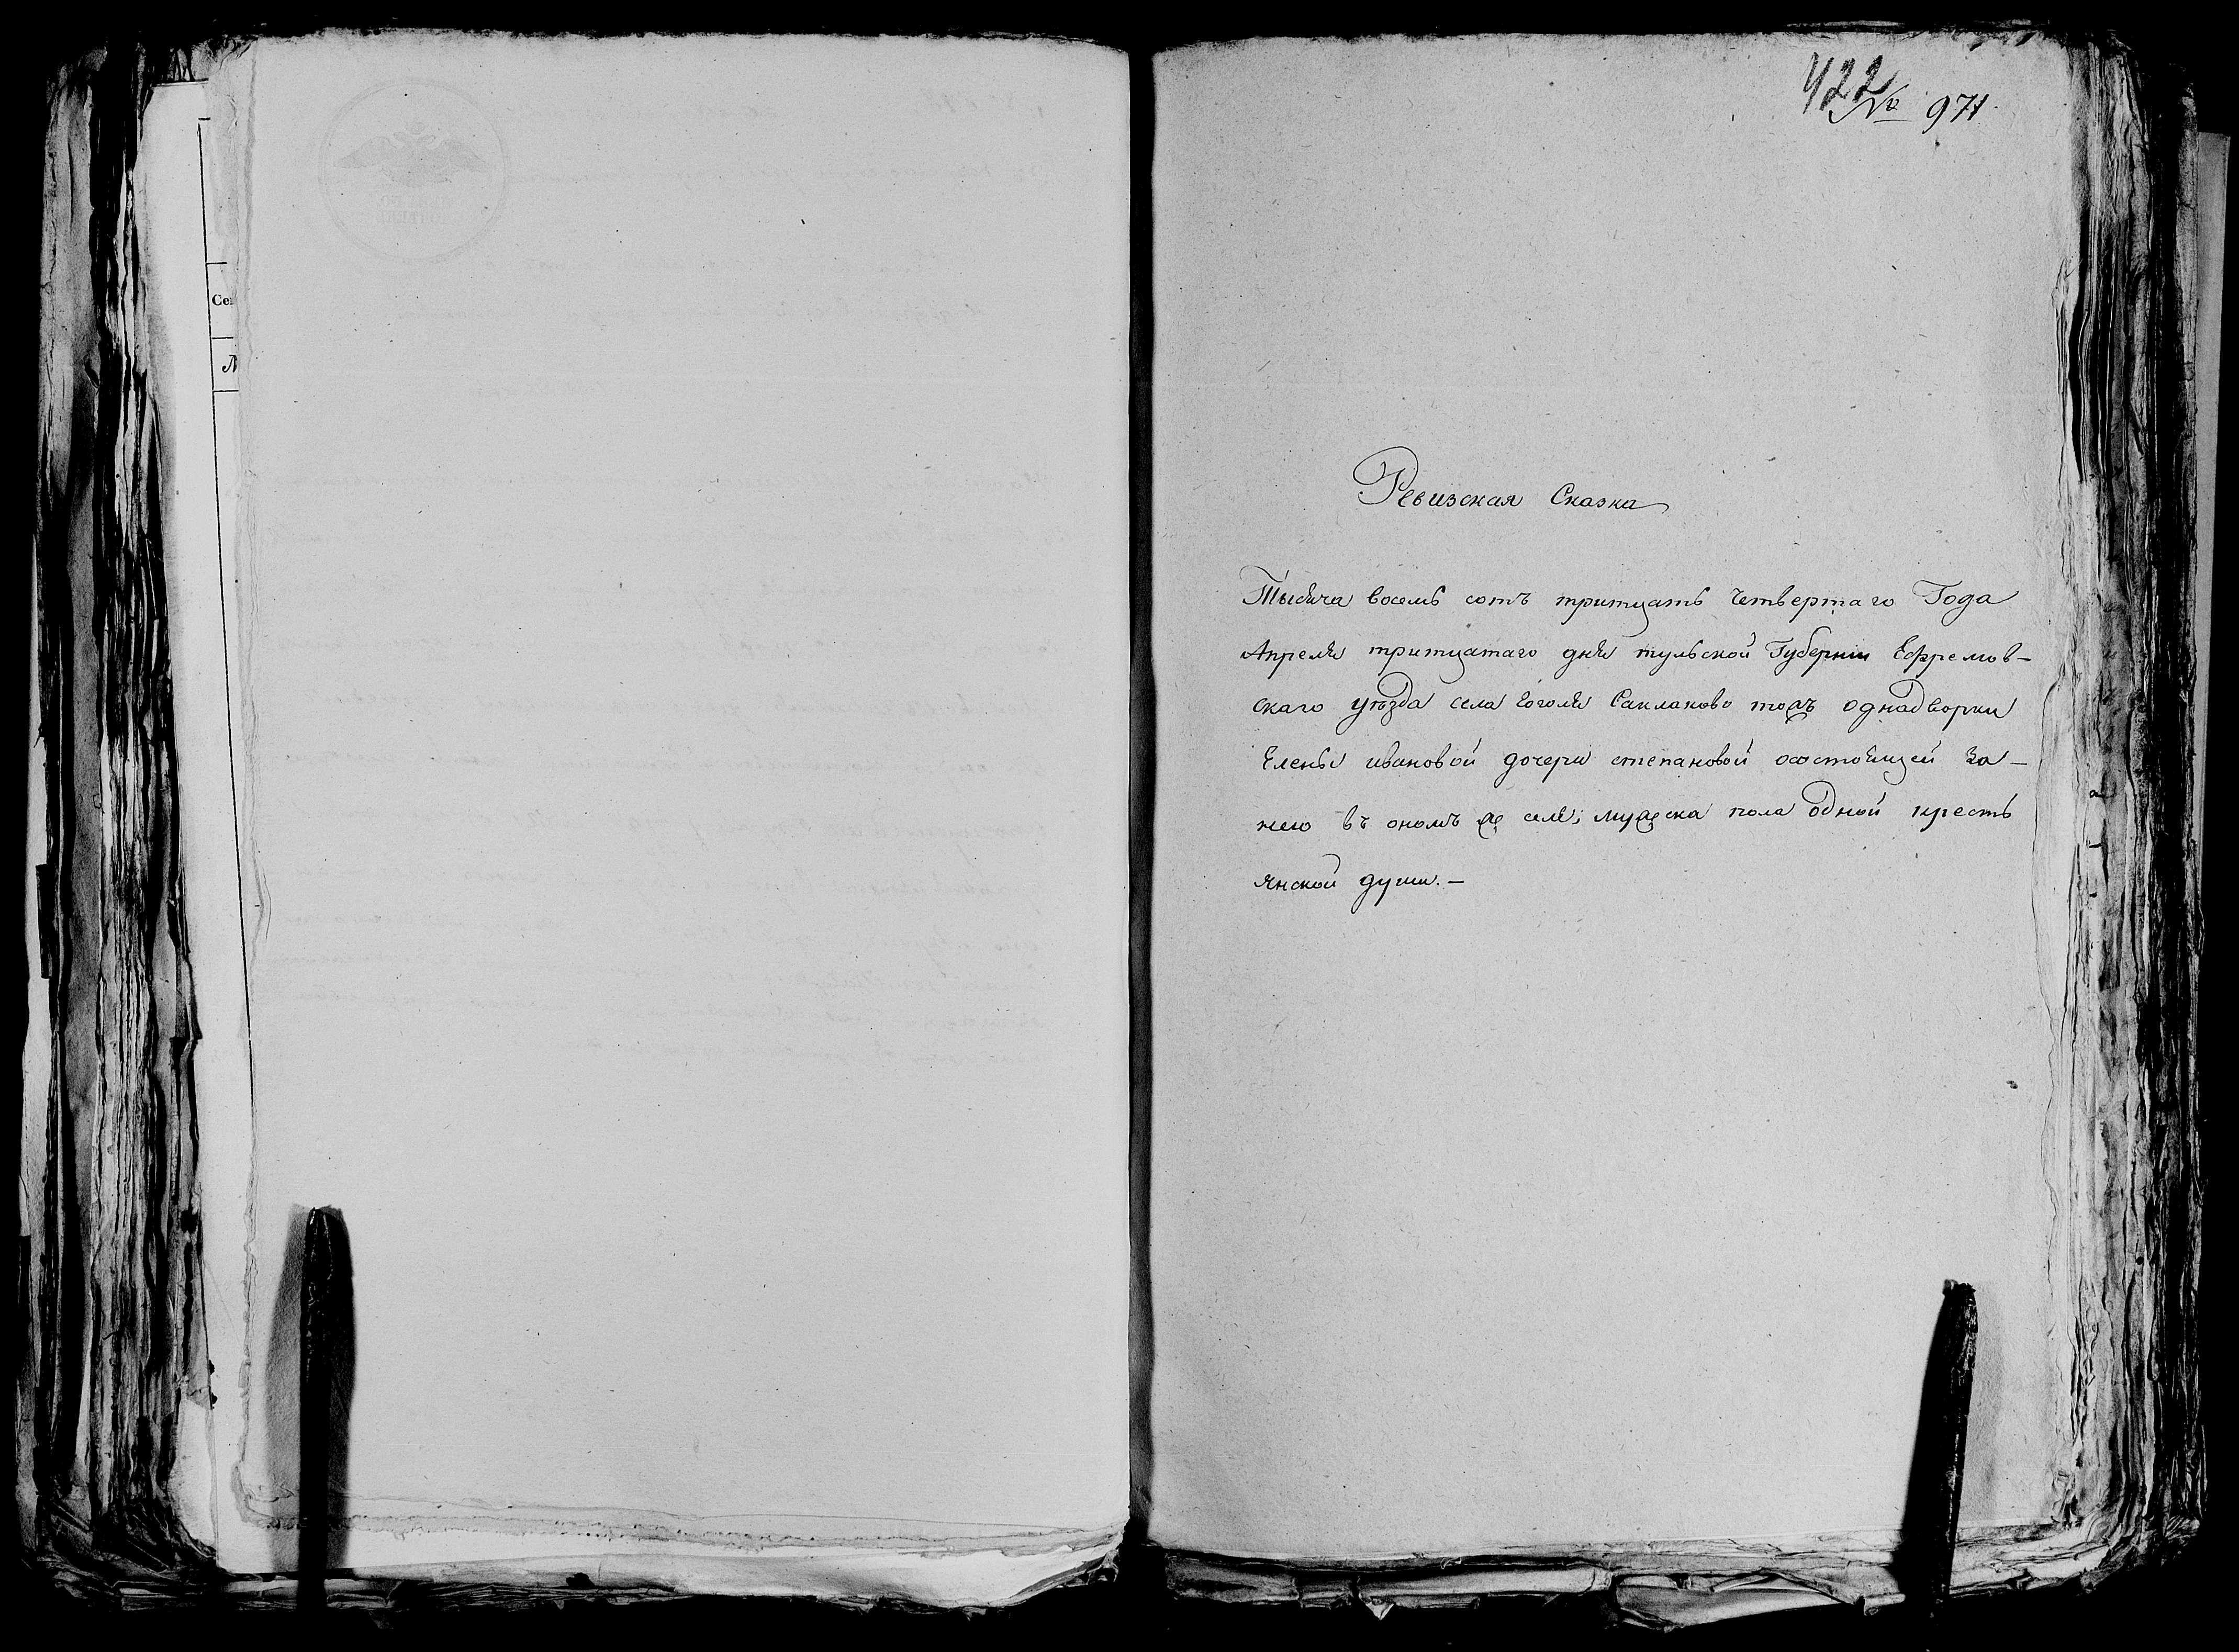 Сег
№
422
№ 971.
Ревизская Сказка
Тысяча восемь сотъ тритцать четвертаго Года
Апреля тритцатаго дня тульской Губернии Ефремов-
скаго уѣзда села Гоголя Сакланово тожъ однадворки
Елены ивановой дочери степановой состоящей за-
нею въ ономъ же селе, мужска пола одной кресть
янской души. -